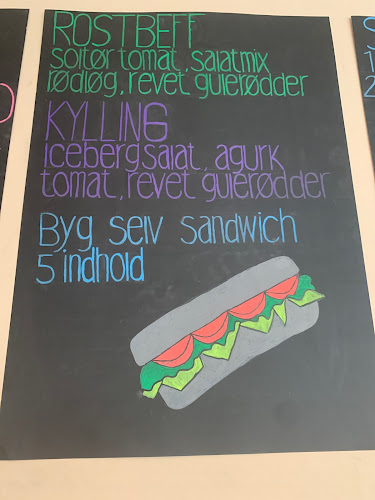 ROSTBEFF
soltør tomat, salatmix
rødløg, revet gulerødder
KYLLING
icebergsalat, agurk
tomat, revet gulerødder
Byg selv sandwich
5 indhold